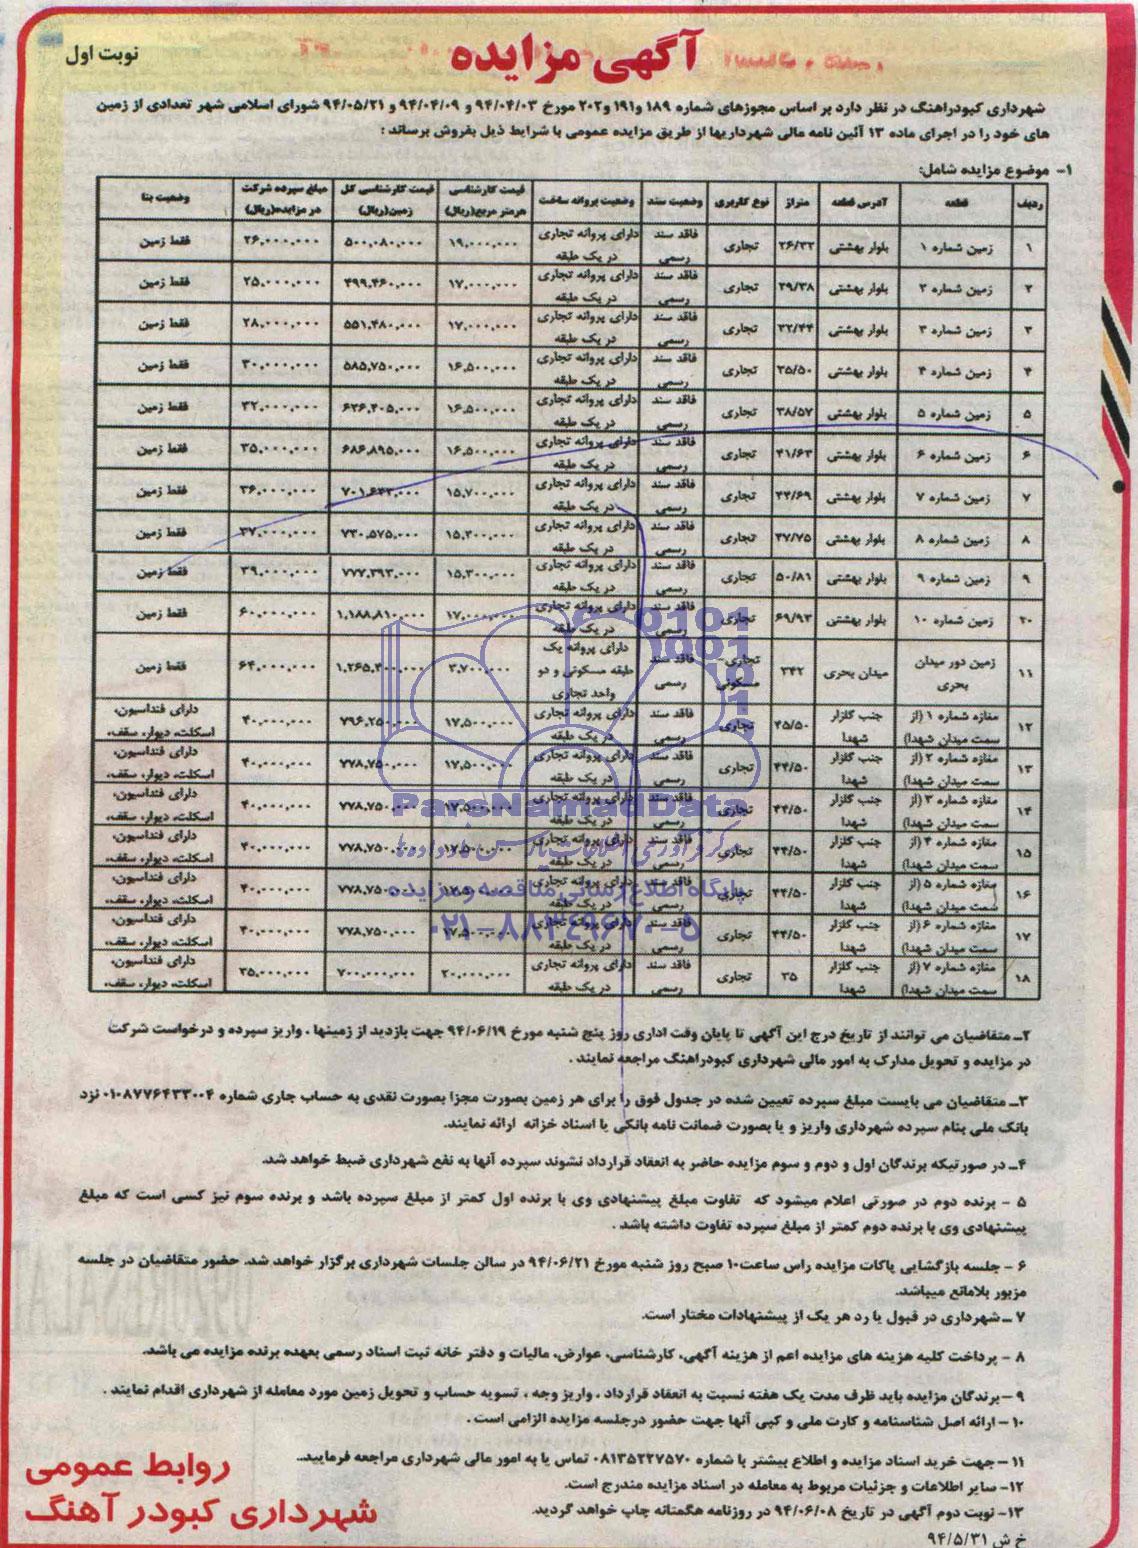 نوبت اول
آگهی مزایده
شهرداری کبودراهنگ در نظر دارد بر اساس مجوزهای شماره ۱۸۹ و۱۹۱ و۲۰۲ مورخ ۹۴/۰۴/۰۳ و ۹۴/۰۴/۰۹ و ۹۴/۰۵/۲۱ شورای اسلامی شهر تعدادی از زمین
های خود را در اجرای ماده ۱۳ آئین نامه مالی شهرداریها از طریق مزایده عمومی با شرایط ذیل بفروش برساند :
۱- موضوع مزایده شامل:
ردیف قطعه آدرس قطعه متراژ نوع کاربری وضعیت سند وضعیت پروانه ساخت قیمت کارشناسی هرمتر مربع(ریال) قیمت کارشناسی کل زمین(ریال) مبلغ سپرده شرکت در مزایده(ریال) وضعیت بنا
۱ زمین شماره ۱ بلوار بهشتی ۲۶/۳۲ تجاری فاقد سند رسمی دارای پروانه تجاری در یک طبقه ۱۹,۰۰۰,۰۰۰ ۵۰۰,۰۸۰,۰۰۰ ۲۶,۰۰۰,۰۰۰ فقط زمین
۲ زمین شماره ۲ بلوار بهشتی ۲۹/۳۸ تجاری فاقد سند رسمی دارای پروانه تجاری در یک طبقه ۱۷,۰۰۰,۰۰۰ ۴۹۹,۴۶۰,۰۰۰ ۲۵,۰۰۰,۰۰۰ فقط زمین
۳ زمین شماره ۳ بلوار بهشتی ۳۲/۴۴ تجاری فاقد سند رسمی دارای پروانه تجاری در یک طبقه ۱۷,۰۰۰,۰۰۰ ۵۵۱,۴۸۰,۰۰۰ ۲۸,۰۰۰,۰۰۰ فقط زمین
۴ زمین شماره ۴ بلوار بهشتی ۳۵/۵۰ تجاری فاقد سند رسمی دارای پروانه تجاری در یک طبقه ۱۶,۵۰۰,۰۰۰ ۵۸۵,۷۵۰,۰۰۰ ۳۰,۰۰۰,۰۰۰ فقط زمین
۵ زمین شماره ۵ بلوار بهشتی ۳۸/۵۷ تجاری فاقد سند رسمی دارای پروانه تجاری در یک طبقه ۱۶,۵۰۰,۰۰۰ ۶۳۶,۴۰۵,۰۰۰ ۳۲,۰۰۰,۰۰۰ فقط زمین
۶ زمین شماره ۶ بلوار بهشتی ۴۱/۶۳ تجاری فاقد سند رسمی دارای پروانه تجاری در یک طبقه ۱۶,۵۰۰,۰۰۰ ۶۸۶,۸۹۵,۰۰۰ ۳۵,۰۰۰,۰۰۰ فقط زمین
۷ زمین شماره ۷ بلوار بهشتی ۴۴/۶۹ تجاری فاقد سند رسمی دارای پروانه تجاری در یک طبقه ۱۵,۷۰۰,۰۰۰ ۷۰۱,۶۳۳,۰۰۰ ۳۶,۰۰۰,۰۰۰ فقط زمین
۸ زمین شماره ۸ بلوار بهشتی ۴۷/۷۵ تجاری فاقد سند رسمی دارای پروانه تجاری در یک طبقه ۱۵,۳۰۰,۰۰۰ ۷۳۰,۵۷۵,۰۰۰ ۳۷,۰۰۰,۰۰۰ فقط زمین
۹ زمین شماره ۹ بلوار بهشتی ۵۰/۸۱ تجاری فاقد سند رسمی دارای پروانه تجاری در یک طبقه ۱۵,۳۰۰,۰۰۰ ۷۷۷,۳۹۳,۰۰۰ ۳۹,۰۰۰,۰۰۰ فقط زمین
۲۰ زمین شماره ۱۰ بلوار بهشتی ۶۹/۹۳ تجاری فاقد سند رسمی دارای پروانه تجاری در یک طبقه ۱۷,۰۰۰,۰۰۰ ۱,۱۸۸,۸۱۰,۰۰۰ ۶۰,۰۰۰,۰۰۰ فقط زمین
۱۱ زمین دور میدان بحری میدان بحری ۳۴۲ تجاری-مسکونی فاقد سند رسمی دارای پروانه یک طبقه مسکونی و دو واحد تجاری ۳,۷۰۰,۰۰۰ ۱,۲۶۵,۴۰۰,۰۰۰ ۶۴,۰۰۰,۰۰۰ فقط زمین
۱۲ مغازه شماره ۱ (از سمت میدان شهدا) جنب گلزار شهدا ۴۵/۵۰ تجاری فاقد سند رسمی دارای پروانه تجاری در یک طبقه ۱۷,۵۰۰,۰۰۰ ۷۹۶,۲۵۰,۰۰۰ ۴۰,۰۰۰,۰۰۰ دارای فنداسیون، اسکلت، دیوار، سقف،
۱۳ مغازه شماره ۲ (از سمت میدان شهدا) جنب گلزار شهدا ۴۴/۵۰ تجاری فاقد سند رسمی دارای پروانه تجاری در یک طبقه ۱۷,۵۰۰,۰۰۰ ۷۷۸,۷۵۰,۰۰۰ ۴۰,۰۰۰,۰۰۰ دارای فنداسیون، اسکلت، دیوار، سقف،
۱۴ مغازه شماره ۳ (از سمت میدان شهدا) جنب گلزار شهدا ۴۴/۵۰ تجاری فاقد سند رسمی دارای پروانه تجاری در یک طبقه ۱۷,۵۰۰,۰۰۰ ۷۷۸,۷۵۰,۰۰۰ ۴۰,۰۰۰,۰۰۰ دارای فنداسیون، اسکلت، دیوار، سقف،
۱۵ مغازه شماره ۴ (از سمت میدان شهدا) جنب گلزار شهدا ۴۴/۵۰ تجاری فاقد سند رسمی دارای پروانه تجاری در یک طبقه ۱۷,۵۰۰,۰۰۰ ۷۷۸,۷۵۰,۰۰۰ ۴۰,۰۰۰,۰۰۰ دارای فنداسیون، اسکلت، دیوار، سقف،
۱۶ مغازه شماره ۵ (از سمت میدان شهدا) جنب گلزار شهدا ۴۴/۵۰ تجاری فاقد سند رسمی دارای پروانه تجاری در یک طبقه ۱۷,۵۰۰,۰۰۰ ۷۷۸,۷۵۰,۰۰۰ ۴۰,۰۰۰,۰۰۰ دارای فنداسیون، اسکلت، دیوار، سقف،
۱۷ مغازه شماره ۶ (از سمت میدان شهدا) جنب گلزار شهدا ۴۴/۵۰ تجاری فاقد سند رسمی دارای پروانه تجاری در یک طبقه ۱۷,۵۰۰,۰۰۰ ۷۷۸,۷۵۰,۰۰۰ ۴۰,۰۰۰,۰۰۰ دارای فنداسیون، اسکلت، دیوار، سقف،
۱۸ مغازه شماره ۷ (از سمت میدان شهدا) جنب گلزار شهدا ۳۵ تجاری فاقد سند رسمی دارای پروانه تجاری در یک طبقه ۲۰,۰۰۰,۰۰۰ ۷۰۰,۰۰۰,۰۰۰ ۳۵,۰۰۰,۰۰۰ دارای فنداسیون، اسکلت، دیوار، سقف،
ParsNamadData
پایگاه اطلاع رسانی مناقصه و مزایده
۰۲۱-۸۸۳۴۹۶۷۰-۵
۲ـ متقاضیان می توانند از تاریخ درج این آگهی تا پایان وقت اداری روز پنج شنبه مورخ ۹۴/۰۶/۱۹ جهت بازدید از زمینها ، واریز سپرده و درخواست شرکت
در مزایده و تحویل مدارک به امور مالی شهرداری کبودراهنگ مراجعه نمایند .
۳ـ متقاضیان می بایست مبلغ سپرده تعیین شده در جدول فوق را برای هر زمین بصورت مجزا بصورت نقدی به حساب جاری شماره ۰۱۰۸۷۷۶۴۳۳۰۰۴ نزد
بانک ملی بنام سپرده شهرداری واریز و یا بصورت ضمانت نامه بانکی یا اسناد خزانه ارائه نمایند.
۴ـ در صورتیکه برندگان اول و دوم و سوم مزایده حاضر به انعقاد قرارداد نشوند سپرده آنها به نفع شهرداری ضبط خواهد شد.
۵ - برنده دوم در صورتی اعلام میشود که تفاوت مبلغ پیشنهادی وی با برنده اول کمتر از مبلغ سپرده باشد و برنده سوم نیز کسی است که مبلغ
پیشنهادی وی با برنده دوم کمتر از مبلغ سپرده تفاوت داشته باشد .
۶ - جلسه بازگشایی پاکات مزایده راس ساعت۱۰ صبح روز شنبه مورخ ۹۴/۰۶/۲۱ در سالن جلسات شهرداری برگزار خواهد شد. حضور متقاضیان در جلسه
مزبور بلامانع میباشد.
۷ ـ شهرداری در قبول یا رد هر یک از پیشنهادات مختار است.
۸ - پرداخت کلیه هزینه های مزایده اعم از هزینه آگهی، کارشناسی، عوارض، مالیات و دفتر خانه ثبت اسناد رسمی بعهده برنده مزایده می باشد.
۹ - برندگان مزایده باید ظرف مدت یک هفته نسبت به انعقاد قرارداد ، واریز وجه ، تسویه حساب و تحویل زمین مورد معامله از شهرداری اقدام نمایند .
۱۰ - ارائه اصل شناسنامه و کارت ملی و کپی آنها جهت حضور درجلسه مزایده الزامی است .
۱۱ - جهت خرید اسناد مزایده و اطلاع بیشتر با شماره ۰۸۱۳۵۲۲۷۵۷۰ تماس یا به امور مالی شهرداری مراجعه فرمایید.
۱۲- سایر اطلاعات و جزئیات مربوط به معامله در اسناد مزایده مندرج است.
۱۳- نوبت دوم آگهی در تاریخ ۹۴/۰۶/۰۸ در روزنامه هگمتانه چاپ خواهد گردید.
خ ش ۹۴/۵/۳۱
روابط عمومی
شهرداری کبودر آهنگ